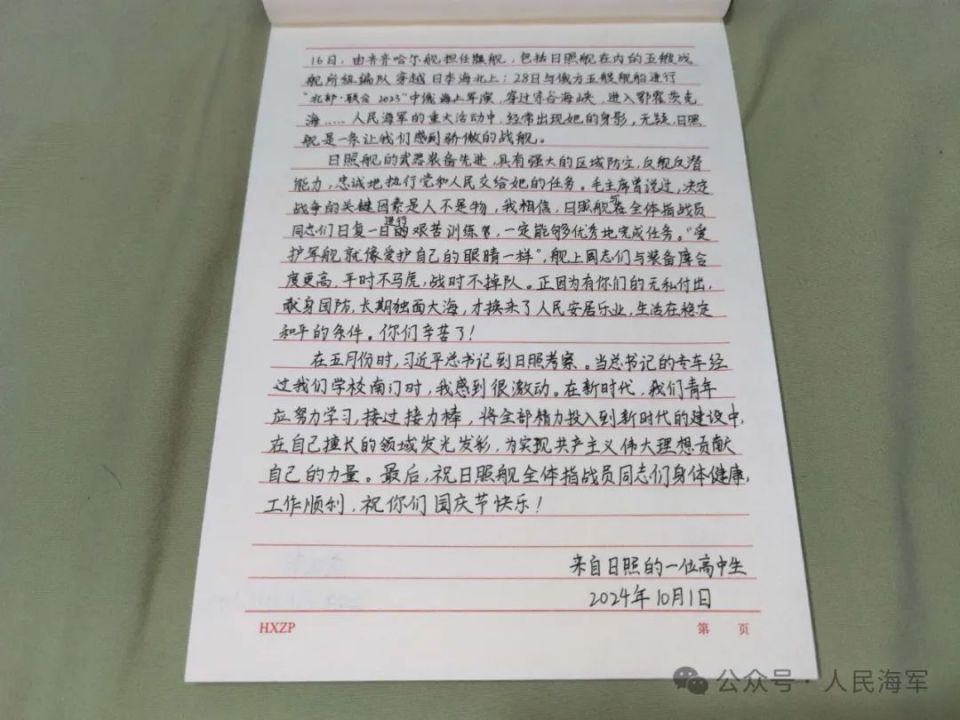 16日，由齐齐哈尔舰担任旗舰，包括日照舰在内的五艘战
舰所组编队穿越日本海北上；28日与俄方五艘舰船进行
“北部·联合2023”中俄海上军演，穿过宗谷海峡，进入鄂霍茨克
海……人民海军的重大活动中，经常出现她的身影，无疑，日照
舰是一条让我们感到骄傲的战舰。
日照舰的武器装备先进，具有强大的区域防空，反舰反潜
能力，忠诚地执行党和人民交给她的任务。毛主席曾说过，决定
战争的关键因素是人不是物，我相信，日照舰在全体指战员
同志们日复一日进行的艰苦训练，一定能够优秀地完成任务。“爱
护军舰就像爱护自己的眼睛一样”，舰上同志们与装备库合
度更高，平时不马虎，战时不掉队。正因为有你们的无私付出，
献身国防，长期独面大海，才换来了人民安居乐业，生活在稳定
和平的条件。你们辛苦了！
在五月份时，习近平总书记到日照考察。当总书记的专车经
过我们学校南门时，我感到很激动。在新时代，我们青年
应努力学习，接过接力棒，将全部精力投入到新时代的建设中，
在自己擅长的领域发光发彩，为实现共产主义伟大理想贡献
自己的力量。最后，祝日照舰全体指战员同志们身体健康，
工作顺利，祝你们国庆节快乐！
来自日照的一位高中生
2024年10月1日
HXZP 第 页
公众号·人民海军